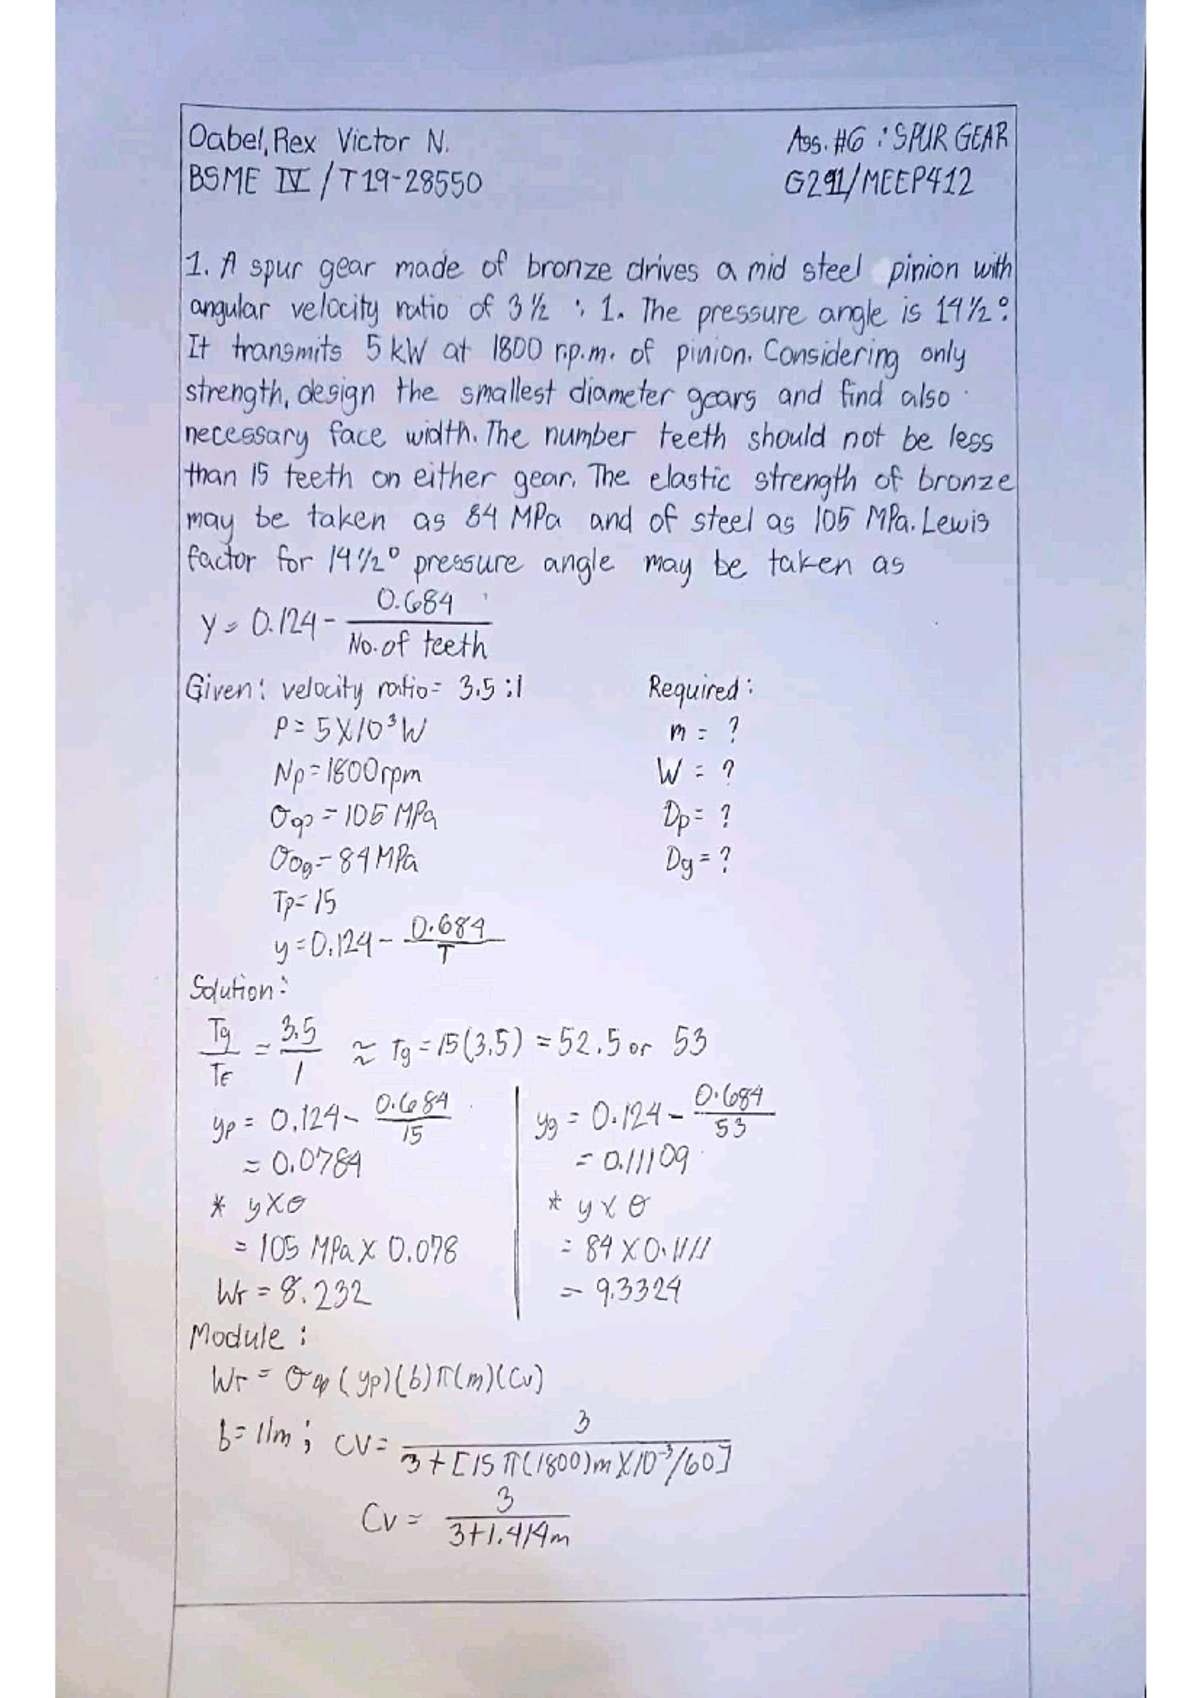 Oabel, Rex Victor N. Ass. #6 : SPUR GEAR
BSME IV / T19-28550 G291/MEEP412
1. A spur gear made of bronze drives a mid steel pinion with
angular velocity ratio of 3 1/2 : 1. The pressure angle is 14 1/2°.
It transmits 5 kW at 1800 r.p.m. of pinion. Considering only
strength, design the smallest diameter gears and find also
necessary face width. The number teeth should not be less
than 15 teeth on either gear. The elastic strength of bronze
may be taken as 84 MPa and of steel as 105 MPa. Lewis
factor for 14 1/2° pressure angle may be taken as
y = 0.124 - 0.684 / No. of teeth
Given: velocity ratio = 3.5 : 1 Required:
P = 5 X 10³ W m = ?
Np = 1800 rpm W = ?
σop = 105 MPa Dp = ?
σog = 84 MPa Dg = ?
Tp = 15
y = 0.124 - 0.684 / T
Solution:
Tg / TF = 3.5 / 1 ≈ Tg = 15(3.5) = 52.5 or 53
yp = 0.124 - 0.684 / 15 yg = 0.124 - 0.684 / 53
= 0.0784 = 0.11109
* y X σ * y X σ
= 105 MPa X 0.078 = 84 X 0.1111
Wr = 8.232 = 9.3324
Module :
Wr = σop (yp)(b) π(m)(Cv)
b = 11m ; CV = 3 / 3 + [15 π(1800)m X 10⁻³/60]
Cv = 3 / 3+1.414m